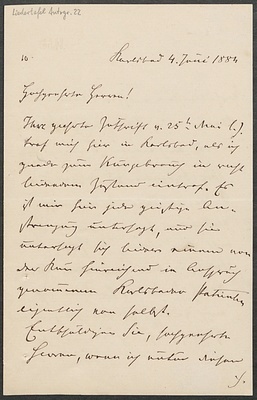 Liedertafel Autogr. 22
10.
Karlsbad 4. Juni 1884
Hochgeehrte Herren!
Ihre geehrte Zuschrift v. 25t. Mai l. J.
traf mich hier in Karlsbad, als ich
gerade zum Kurgebrauch in recht
leidendem Zustand eintraf. Es
ist mir hier jede geistige An-
strengung untersagt, und sie
untersagt sich leider einem von
der Kur hinreichend in Anspruch
genommenen Karlsbader Patienten
eigentlich von selbst.
Entschuldigen Sie, hochgeehrte
Herren, wenn ich unter diesen
./.